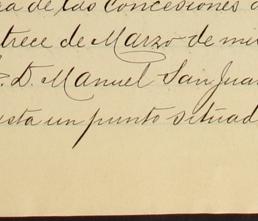 ea de las concesiones
trece de Marzo de mi
D. Manuel San Jua
sta un punto situad